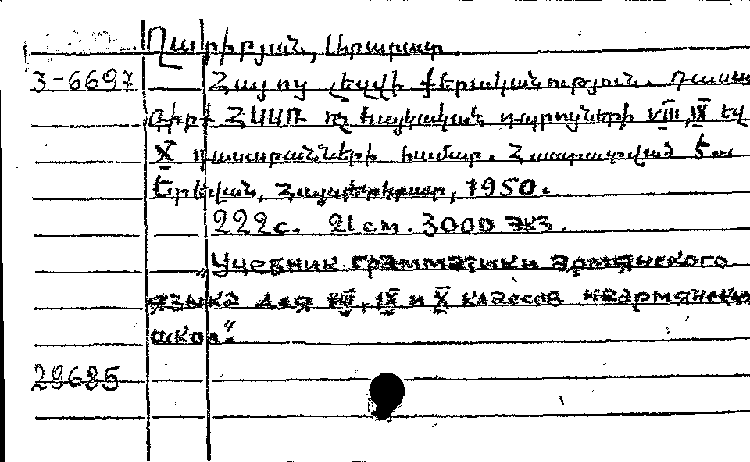 Ղարիբյան, Արարատ.
3-6697 Հայոց լեզվի քերականություն. Դասա
գիրք ՀՍՍՌ ոչ հայկական դպրոցների VIII, IX եվ
X դասարանների համար. Հաստատված է...
Երեվան, Հայպետհրատ, 1950.
222с. 21cm. 3000 экз.
„Учебник грамматики армянского
языка для VIII, IX и X классов неармянски
школ“.
29685